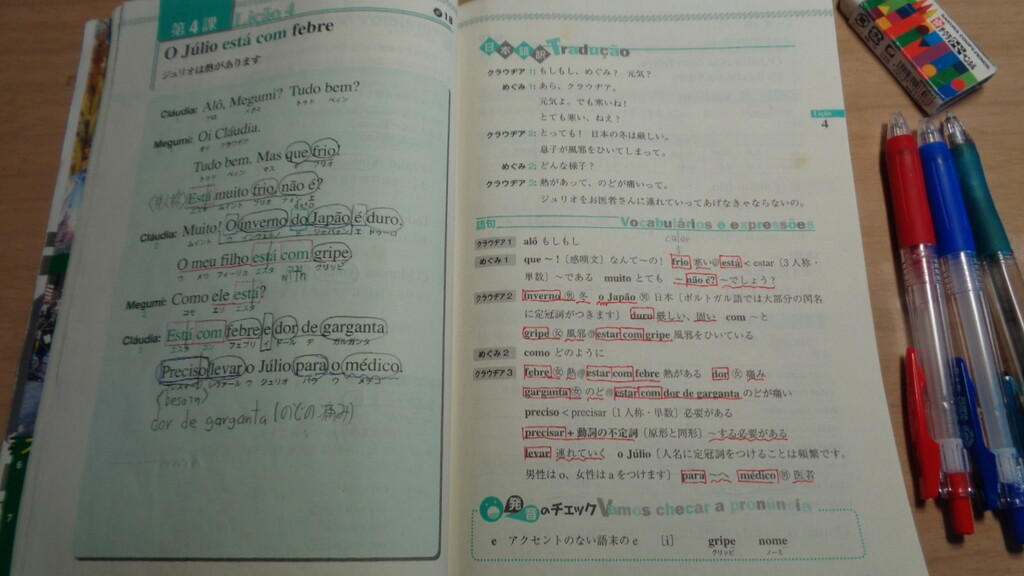 第4課 Lição 4
18
O Júlio está com febre
ジュリオは熱があります
Cláudia: Alô, Megumi? Tudo bem?
アロ メグミ トゥド ベイン
Megumi: Oi Cláudia.
オイ クラウヂア
Tudo bem. Mas que frio!
トゥド ベイン マス キ フリオ
Está muito frio, não é?
Cláudia: Muito! O inverno do Japão é duro.
O meu filho está com gripe.
with
Megumi: Como ele está?
コモ エリ エスタ
Cláudia: Está com febre e dor de garganta.
エスタ コン フェブリ イ ドール ヂ ガルガンタ
Preciso levar o Júlio para o médico.
dor de garganta (のどの痛み)
日本語訳 Tradução
クラウヂア 1: もしもし、めぐみ? 元気?
めぐみ 1: あら、クラウヂア。
元気よ。でも寒いね!
とても寒い、ねえ?
クラウヂア 2: とっても! 日本の冬は厳しい。
息子が風邪をひいてしまって。
めぐみ 2: どんな様子?
クラウヂア 3: 熱があって、のどが痛いって。
ジュリオをお医者さんに連れていってあげなきゃならないの。
Lição
4
語句 Vocabulários e expressões
クラウヂア 1 alô もしもし
めぐみ 1 que ~ ! [感嘆文] なんて~の! frio 寒い está < estar (3人称・
単数) ~である muito とても ~ não é? ~でしょう?
クラウヂア 2 inverno 男 冬 o Japão 男 日本 [ポルトガル語では大部分の国名
に定冠詞がつきます] duro 厳しい、固い com ~と
gripe 女 風邪 estar com gripe 風邪をひいている
めぐみ 2 como どのように
クラウヂア 3 febre 女 熱 estar com febre 熱がある dor 女 痛み
garganta 女 のど estar com dor de garganta のどが痛い
preciso < precisar (1人称・単数) 必要がある
precisar + 動詞の不定詞 [原形と同形] ~する必要がある
levar 連れていく o Júlio [人名に定冠詞をつけることは頻繁です。
男性は o、女性は a をつけます] para ~へ médico 男 医者
発音のチェック Vamos checar a pronúncia
e アクセントのない語末の e [i] gripe nome
グリッピ ノーミ